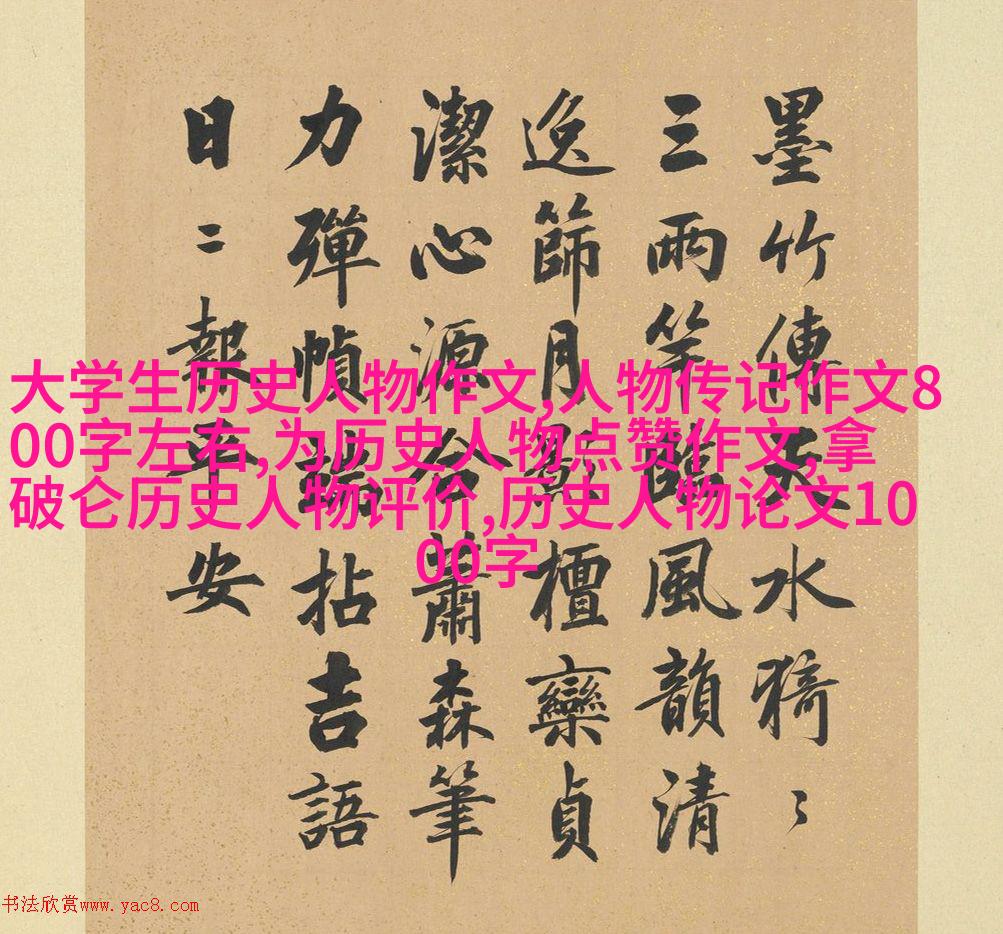 墨竹傳天水猗〻
三兩竿臨風韻清
逸篩月影檀欒貞
潔心源蕭森筆
力彈幀端拈吉語
日二報平安
大学生历史人物作文,人物传记作文8
00字左右,为历史人物点赞作文,拿
破仑历史人物评价,历史人物论文10
00字
书法欣赏www.yac8.com